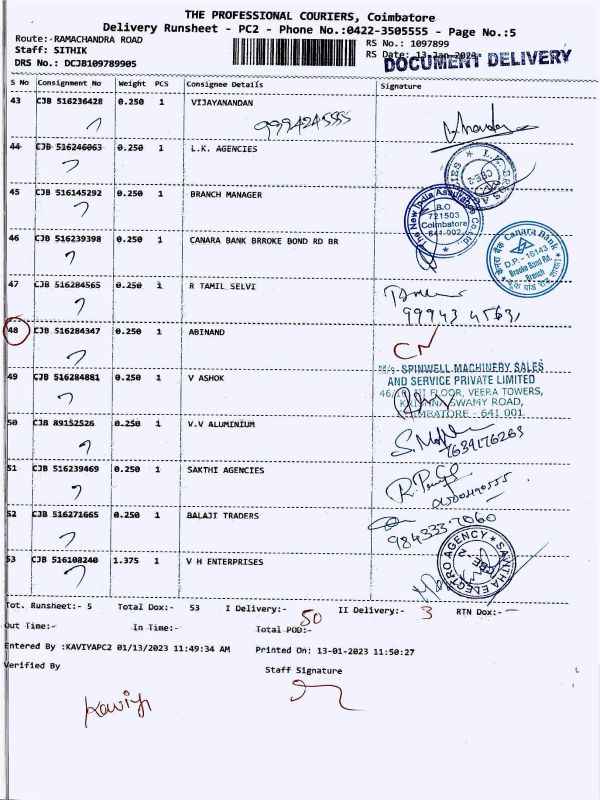 THE PROFESSIONAL COURIERS, Coimbatore
Delivery Runsheet - PC2 - Phone No.:0422-3505555 - Page No.:5
Route:-RAMACHANDRA ROAD
RS No.: 1097899
Staff: SITHIK
RS Date: 13-Jan-2023
DOCUMENT DELIVERY
DRS No.: DCJB109789905
S No Consignment No Weight PCS Consignee Details Signature
43 CJB 516236428 0.250 1 VIJAYANANDAN
9994245555
44 CJB 516246063 0.250 1 L.K. AGENCIES
45 CJB 516145292 0.250 1 BRANCH MANAGER
The New India Assurance Co. Ltd.
B.O
721503
Coimbatore
641-002
46 CJB 516239398 0.250 1 CANARA BANK BRROKE BOND RD BR
Canara Bank
D.P.-16143
Brooke Bond Rd.
Branch
47 CJB 516284565 0.250 1 R TAMIL SELVI
48 CJB 516284347 0.250 1 ABINAND
CN
49 CJB 516284881 0.250 1 V ASHOK
SPINWELL MACHINERY SALES
AND SERVICE PRIVATE LIMITED
III FLOOR, VEERA TOWERS,
KRISHNASWAMY ROAD,
COIMBATORE - 641 001
50 CJB 89152526 0.250 1 V.V ALUMINIUM
7639176263
51 CJB 516239469 0.250 1 SAKTHI AGENCIES
52 CJB 516271665 0.250 1 BALAJI TRADERS
53 CJB 516108240 1.375 1 V H ENTERPRISES
SANTHA ELECTRO AGENCY
CBE
Tot. Runsheet:- 5 Total Dox:- 53 I Delivery:- 50 II Delivery:- 3 RTN Dox:- -
Out Time:- In Time:- Total POD:-
Entered By :KAVIYAPC2 01/13/2023 11:49:34 AM Printed On: 13-01-2023 11:50:27
Verified By Staff Signature
Kaviya